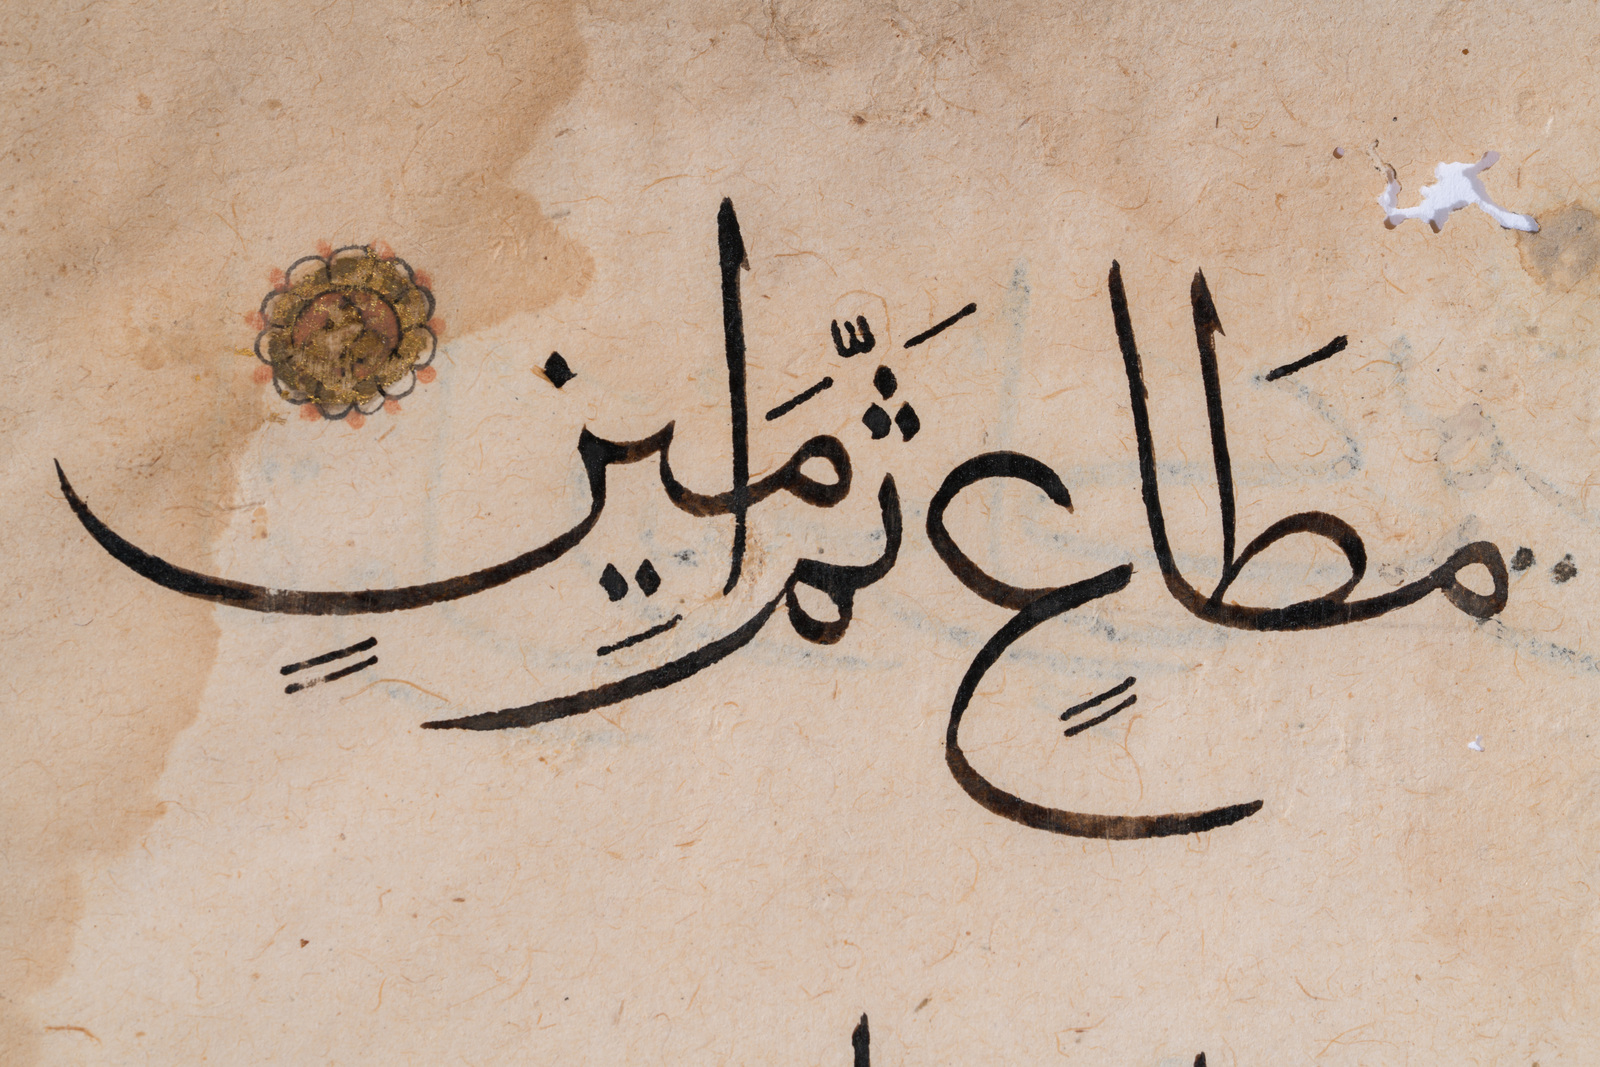 مطَاعٍ ثَمَّ امَِينٍ